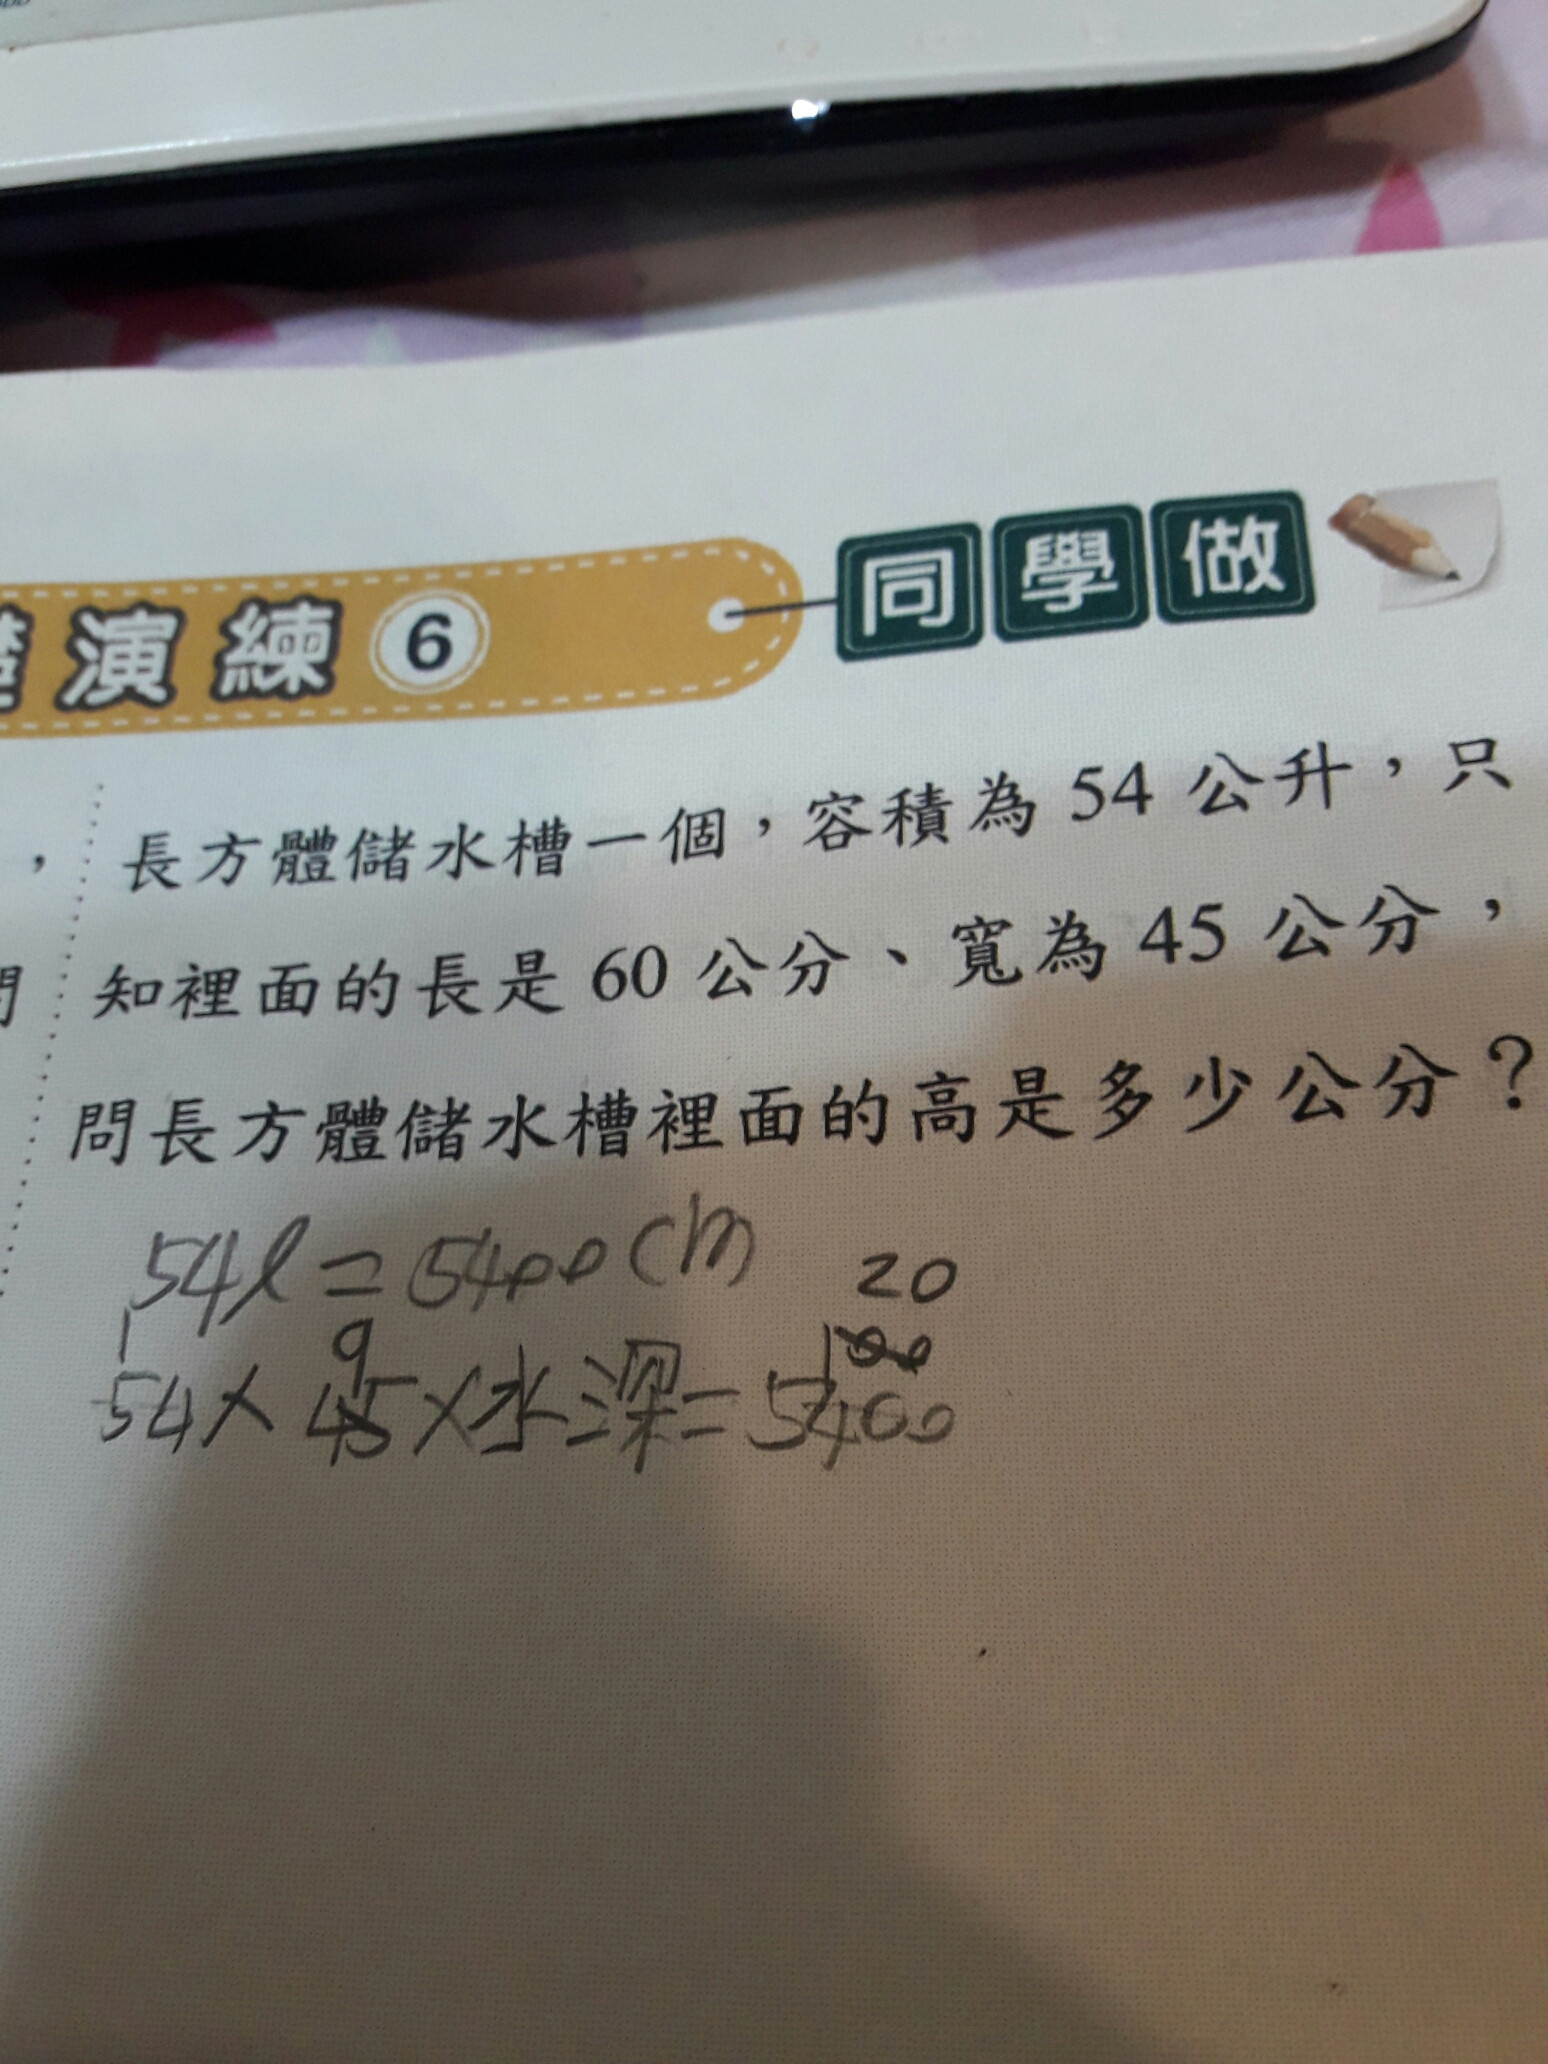 演練 6 同學做
長方體儲水槽一個，容積為 54 公升，只
知裡面的長是 60 公分、寬為 45 公分，
問長方體儲水槽裡面的高是多少公分？
54l = 5400cm
20
1 9 100
54×45×水深=5400